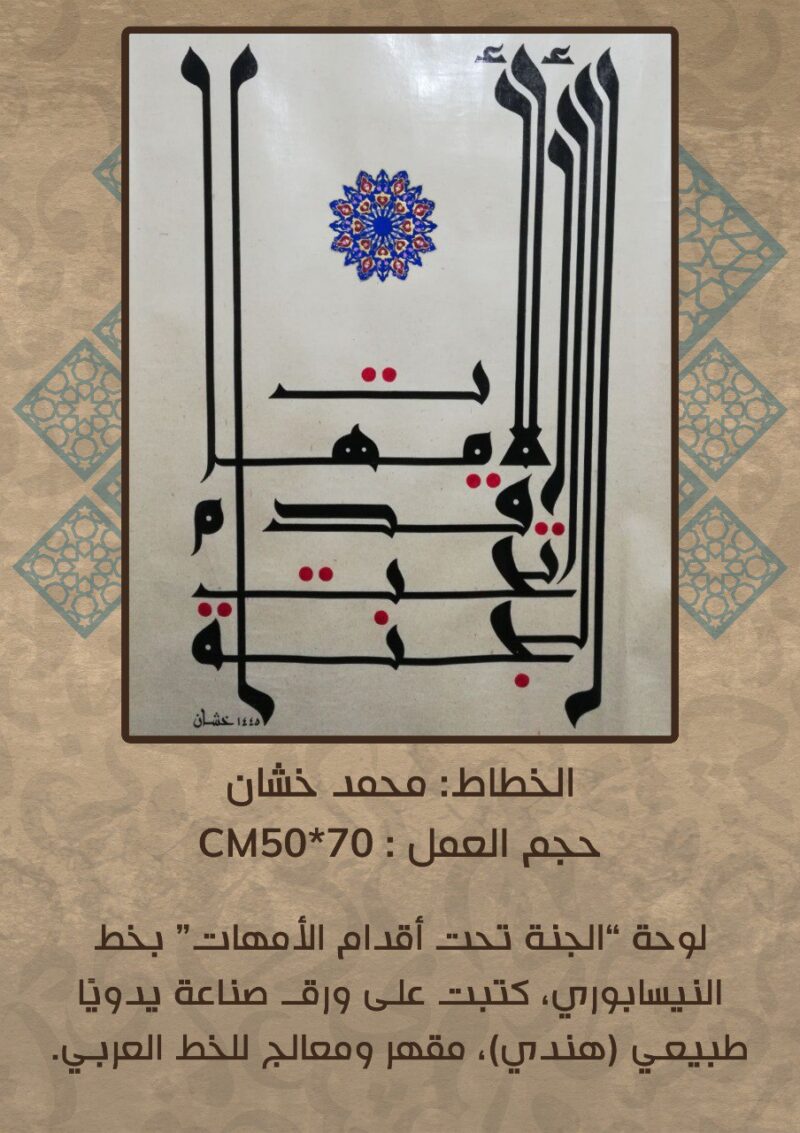 الجنة
تحت
أقدام
الأمهات
١٤٤٥ خشان
الخطاط: محمد خشان
حجم العمل : CM50*70
لوحة “الجنة تحت أقدام الأمهات” بخط
النيسابوري، كتبت على ورق صناعة يدويًا
طبيعي (هندي)، مقهر ومعالج للخط العربي.